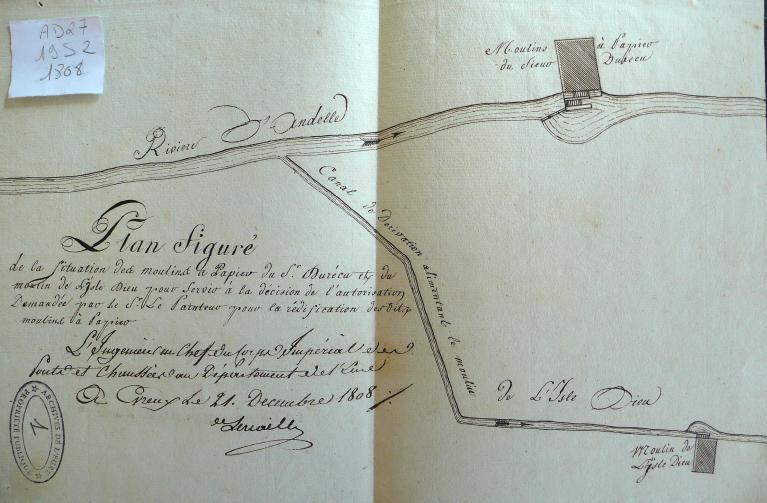 AD27
19S2
1808
Moulins à Papier
du Sieur Durécu
Riviere D'Andelle
Canal de Derivation alimentant le moulin de L'Isle Dieu
Plan figuré
de la situation des moulins à Papier du Sr. Durécu et du
moulin de L'Isle Dieu pour servir à la décision de l'autorisation
Demandée par le Sr. Le Painteur pour la rédification des dits
moulins à Papier
L'Ingenieur en Chef du Corps Impérial des
Ponts et Chaussées au Département de l'Eure
A Evreux Le 21. Decembre 1808
Moulin de
L'Isle Dieu
ARCHIVES DE L'EURE
PROPRIÉTÉ PUBLIQUE